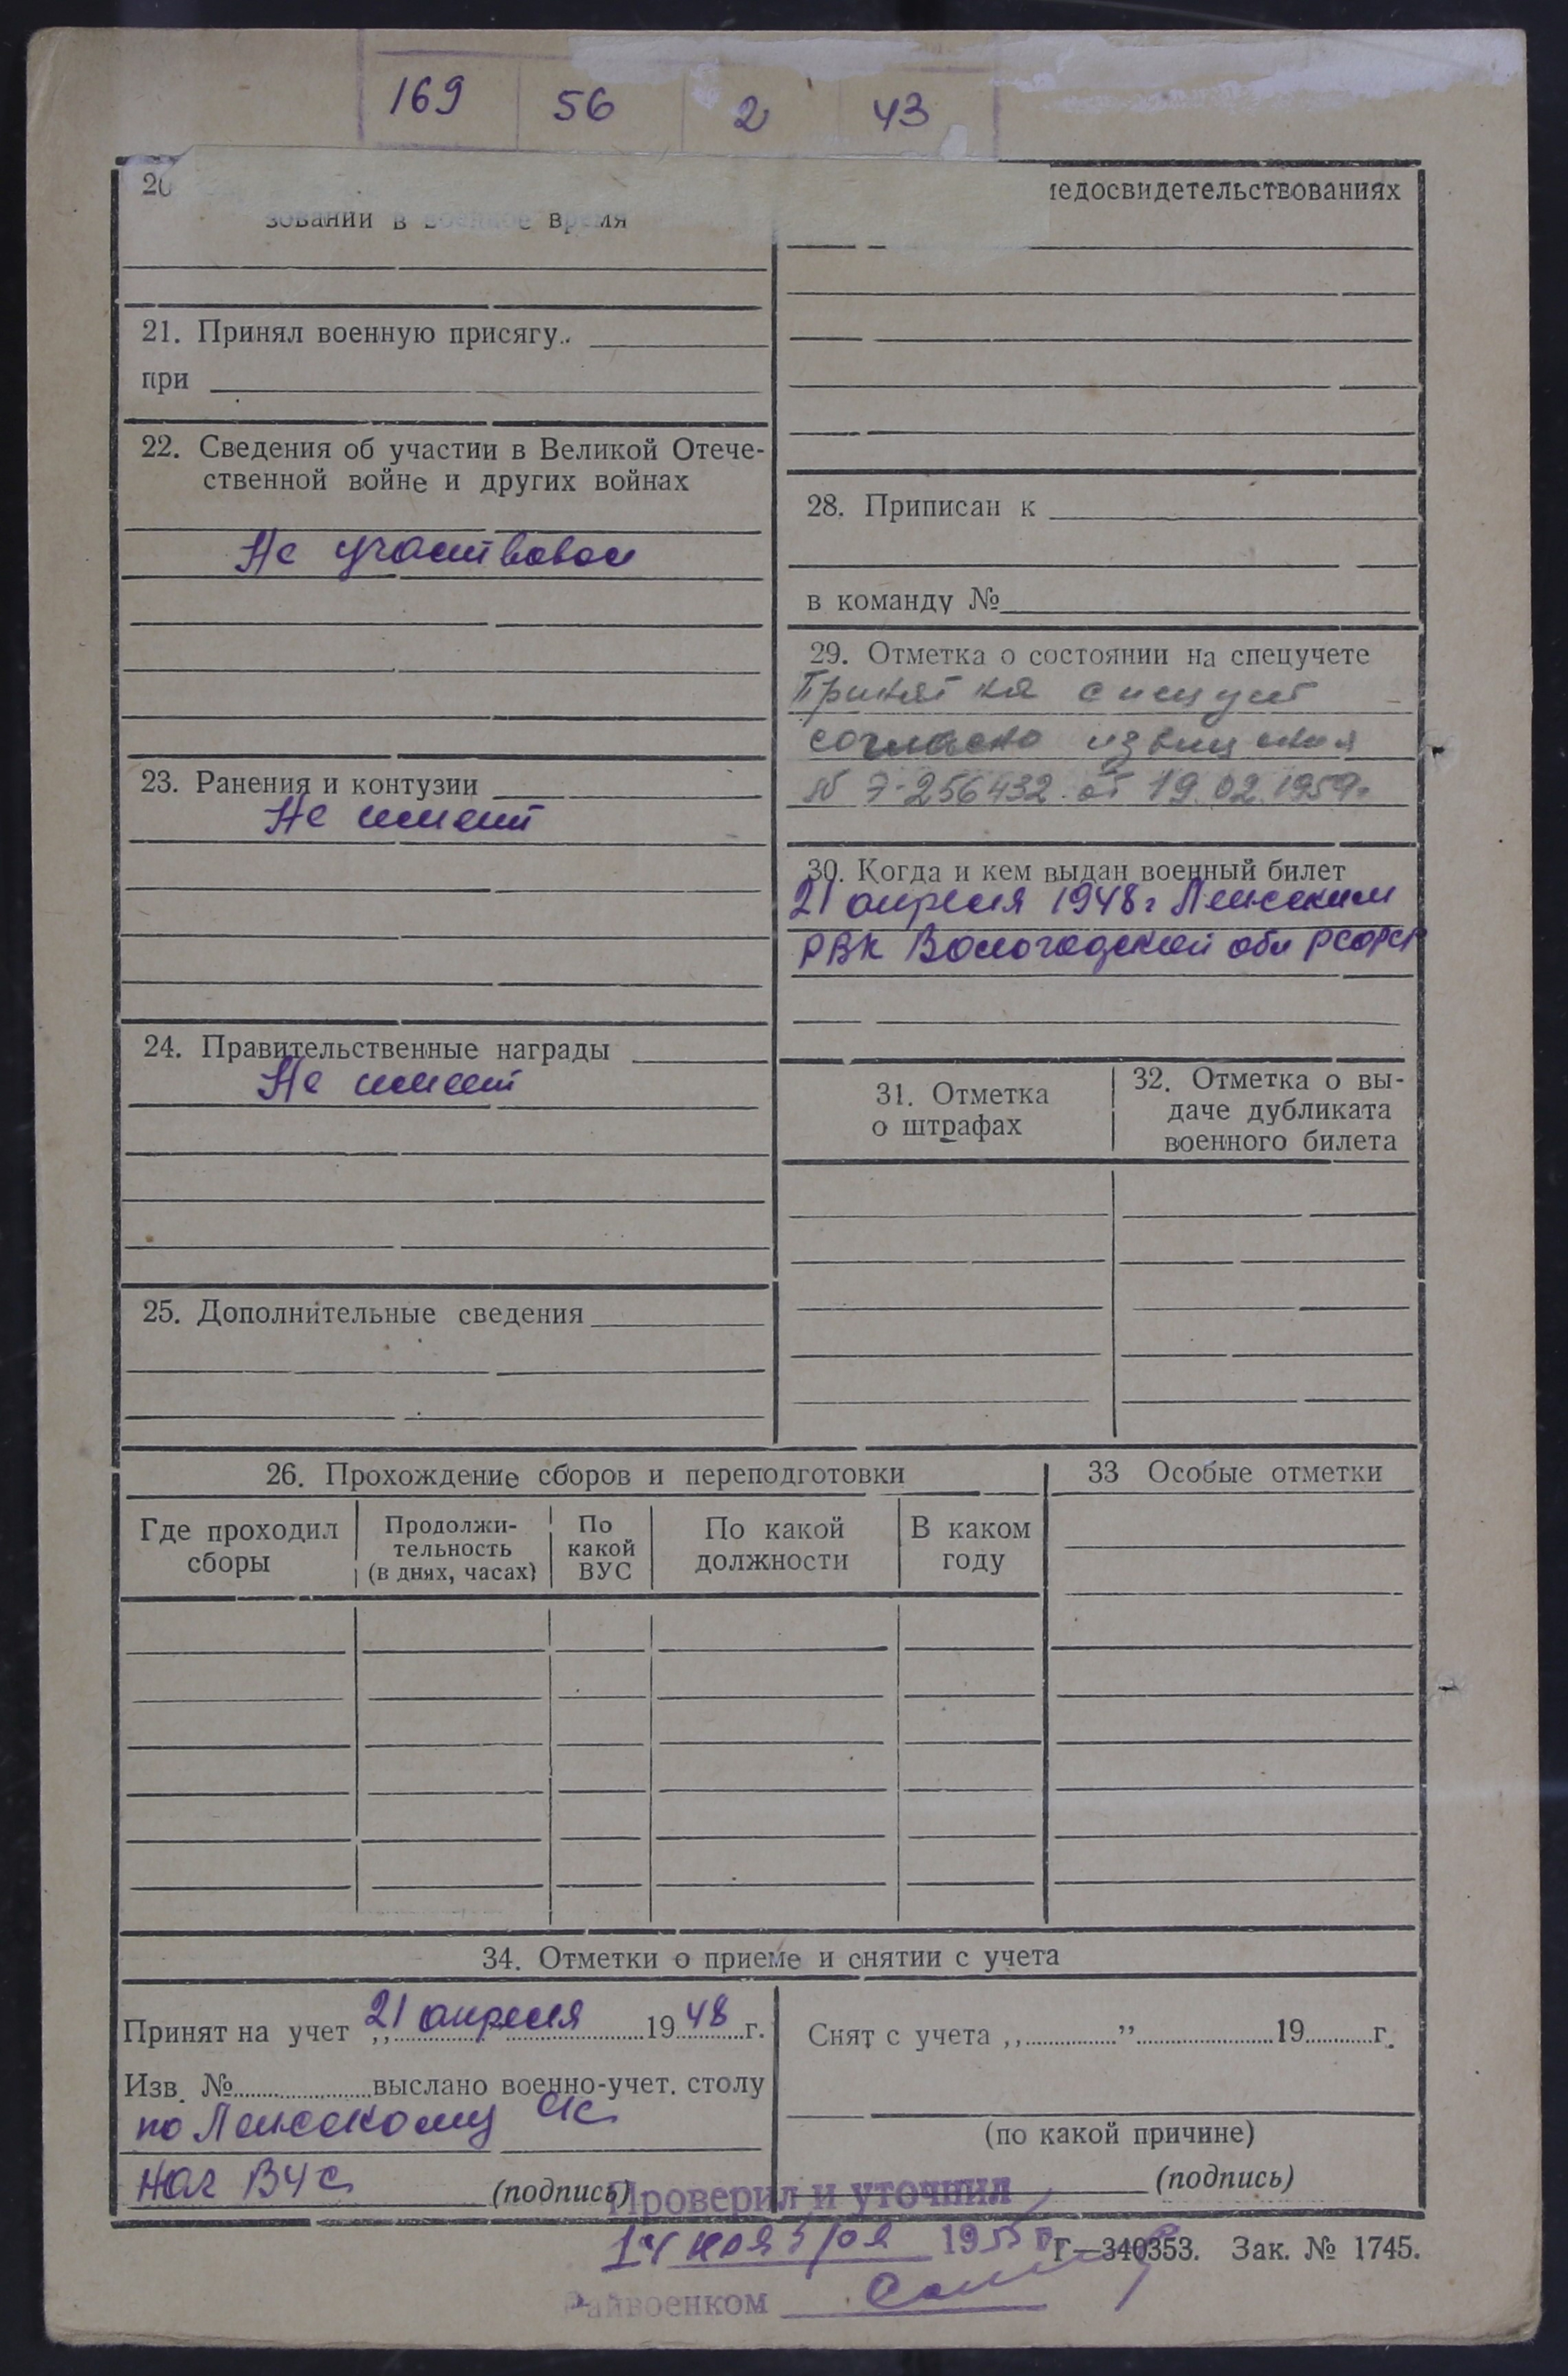 169 56 2 43
20
зовании в военное время
21. Принял военную присягу
при
22. Сведения об участии в Великой Отече-
ственной войне и других войнах
Не участвовал
23. Ранения и контузии
Не имеет
24. Правительственные награды
Не имеет
25. Дополнительные сведения
медосвидетельствованиях
28. Приписан к
в команду №
29. Отметка о состоянии на спецучете
Принят на спецучет
согласно извещения
№ Э-256432 от 19.02.1959г
30. Когда и кем выдан военный билет
21 апреля 1948г Ленским
РВК Вологодской обл РСФСР
31. Отметка
о штрафах
32. Отметка о вы-
даче дубликата
военного билета
26. Прохождение сборов и переподготовки
Где проходил
сборы
Продолжи-
тельность
(в днях, часах)
По
какой
ВУС
По какой
должности
В каком
году
33 Особые отметки
34. Отметки о приеме и снятии с учета
Принят на учет „21 апреля 1948г.
Изв. № выслано военно-учет. столу
по Ленскому
Нач ВУС (подпись)
Снят с учета „ ” 19 г.
(по какой причине)
(подпись)
Проверил и уточнил
14 ноября 1955 г
Райвоенком
Г—340353. Зак. № 1745.